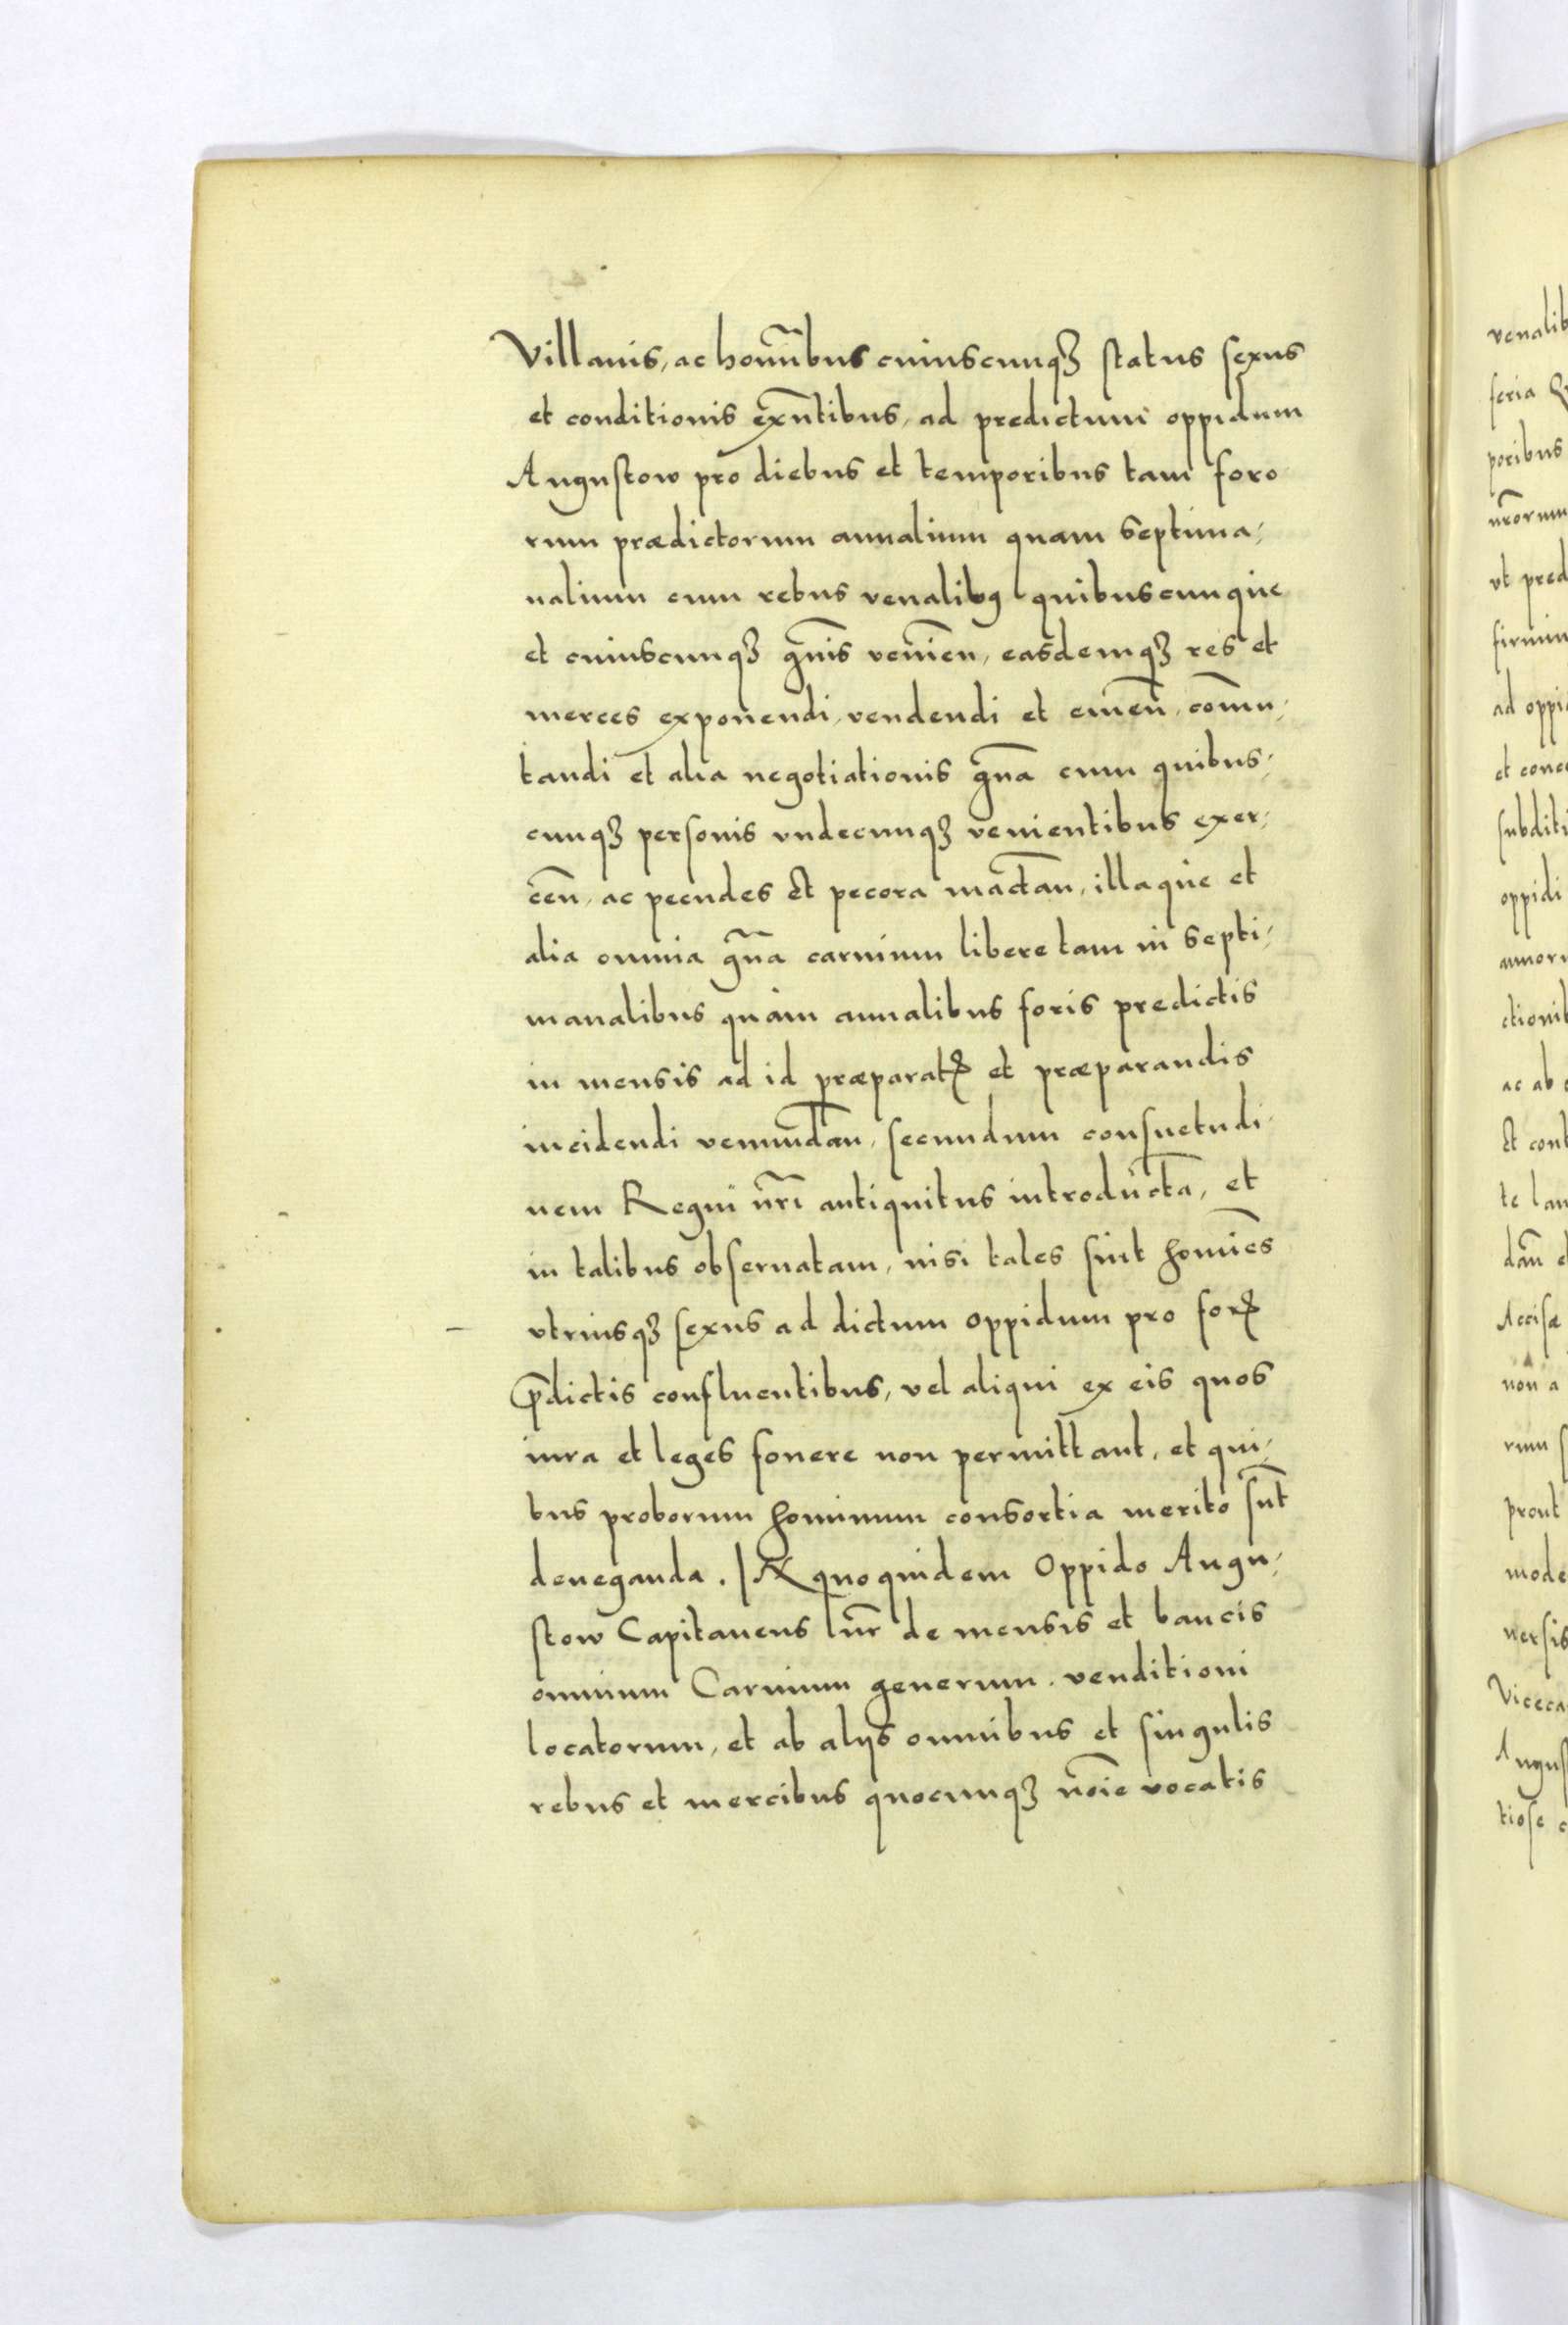 Villanis, ac hom̃ibus cuiuscunqꝫ status sexus
et conditionis exñtibus, ad predictum oppidum
Augustow pro diebus et temporibus tam foro
rum prædictorum annalium quam septima,
nalium cum rebus venalibꝰ quibuscunque
et cuiuscunqꝫ gñis venieñ, easdemqꝫ res et
merces exponendi, vendendi et emeñ, com̃u,
tandi et alia negotiationis gña cum quibus,
cunqꝫ personis vndecunqꝫ venientibus exer,
ceñ, ac pecudes et pecora mactañ, illaque et
alia omnia gña carnium libere tam in septi,
manalibus quàm annalibus foris predictis
in mensis ad id præparatꝭ et præparandis
incidendi venundañ, secundum consuetudi
nem Regni nr̃i antiquitus introductã, et
in talibus obseruatam, nisi tales sint homĩes
vtriusqꝫ sexus ad dictum oppidum pro forꝭ
p̃dictis confluentibus, vel aliqui ex eis quos
iura et leges fouere non permittant, et qui,
bus proborum hominum consortia merito sũt
deneganda. | A quoquidem Oppido Augu,
stow Capitaneus nr̃ de mensis et bancis
omnium Carnium generum venditioni
locatorum, et ab alijs omnibus et singulis
rebus et mercibus quocunqꝫ nõie vocatis
venalib
feria
poribus
nr̃orum
vt pred
firmi
ad oppi
et conc
subditi
oppidi
ctionib
ac ab
et cont
te lan
dañ
Accisæ
non a
rum
prout
mode
uersis
Viceca
Augus
tiose c